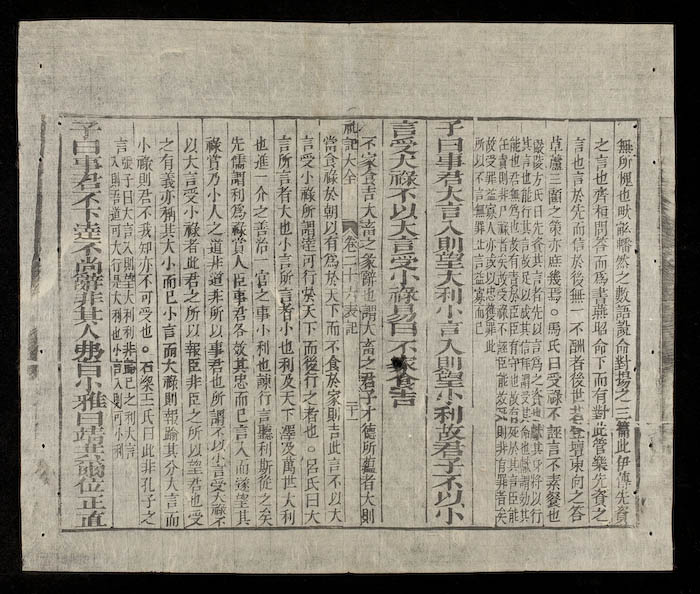 無所愧也畎畝幡然之數語說命對揚之三篇此伊傅先資
之言也齊桓問答而爲書燕昭命下而有對此管樂先資之
言也言於先而信於後無一不酬者後世若登壇東向之答
草廬三顧之策亦庶幾焉。馬氏曰受祿不誣言不素餐也
子曰事君大言入則望大利小言入則望小利故君子不以小
言受大祿不以大言受小祿易曰不家食吉
不家食吉大畜之彖辭也謂大畜之君子才德所蘊者大則
禮記大全 卷二十六表記
當食祿於朝以有爲於天下而不食於家則吉此言不以大
言受小祿所謂達可行於天下而後行之者也。呂氏曰大
言所言者大也小言所言者小也利及天下澤及萬世大利
也進一介之善治一官之事小利也諫行言聽利斯從之矣
先儒謂利爲祿賞人臣事君各效其忠而已言入而遂望其
祿賞乃小人之道非所以事君也所謂不以小言受大祿不
以大言受小祿者此君之所以報臣非臣之所以望君也受
之有義亦稱其大小而已小言而大祿則報踰其分大言而
小祿則君不我知亦不可受也。石梁王氏曰此非孔子之
言
張子曰大言入則望大利利非歸己之利大言
入則吾道可大行是大利也小言入則可小利
子曰事君不下達不尚辭非其人弗自小雅曰靖共爾位正直